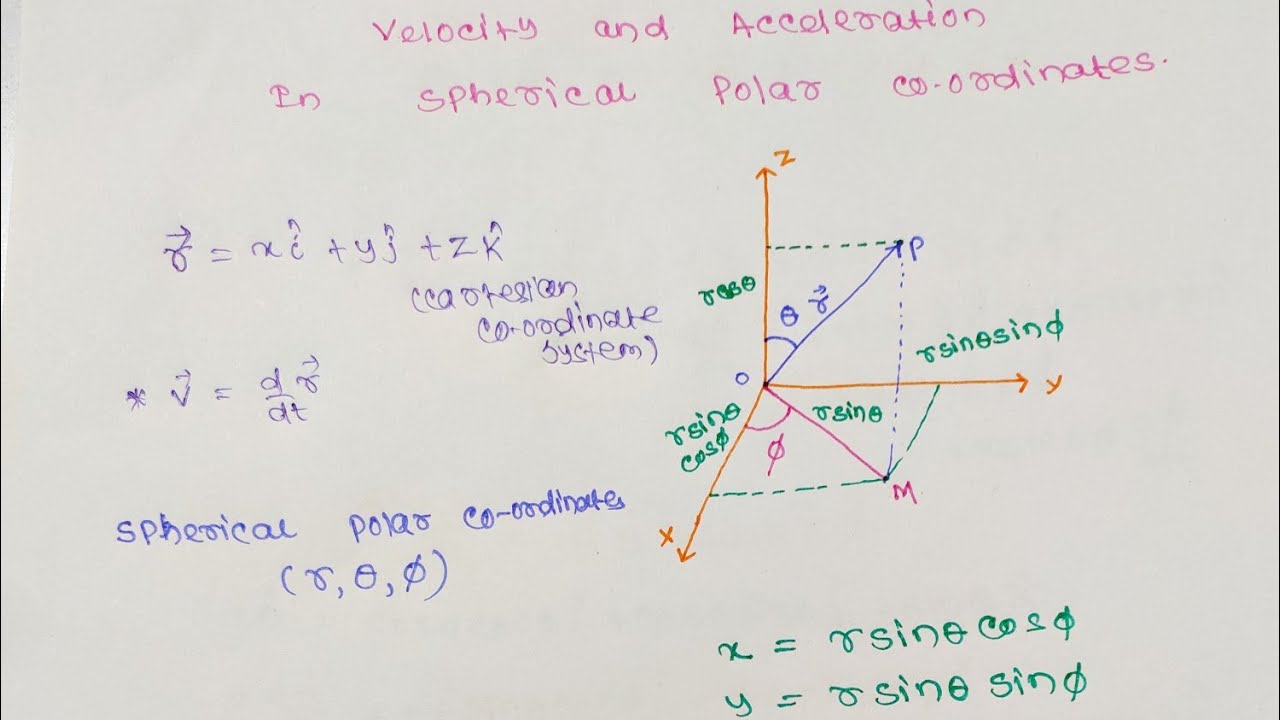 Velocity and Acceleration
In Spherical Polar Co-ordinates.
r⃗ = xî + yĵ + zk̂
(Cartesian
co-ordinate
system)
* v⃗ = d/dt r⃗
Spherical Polar Co-ordinates
(r, θ, ϕ)
Z
P
rcosθ
θ
r⃗
rsinθsinϕ
O
Y
rsinθ
cosϕ
rsinθ
ϕ
M
X
x = rsinθcosϕ
y = rsinθ sinϕ